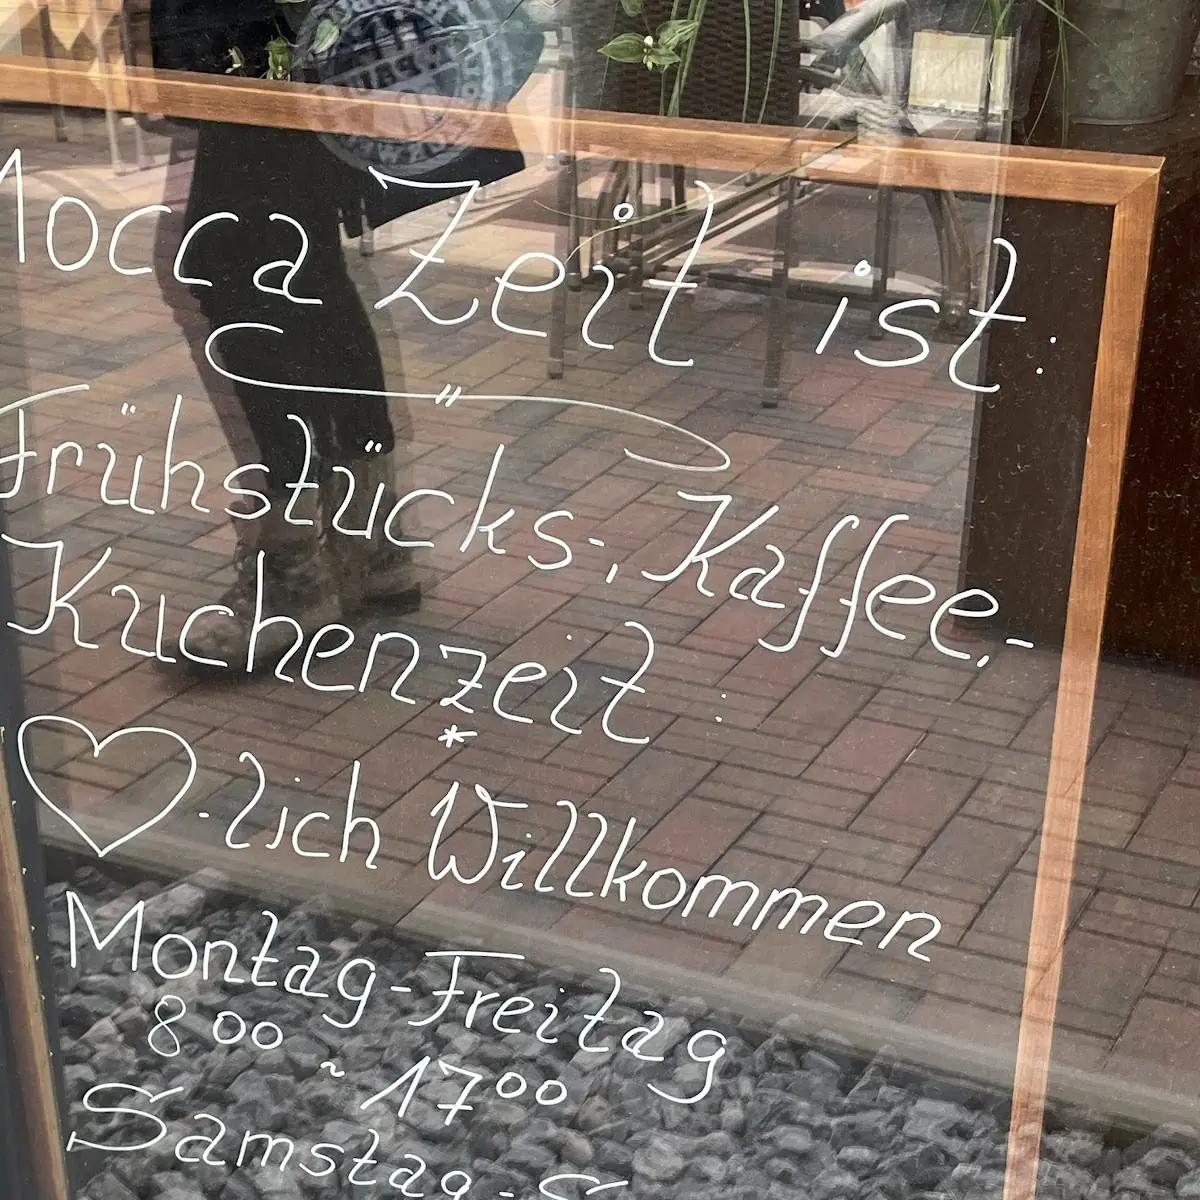 Mocca Zeit ist:
Frühstücks-, Kaffee,-
Kuchenzeit:
*
♡-lich Willkommen
Montag-Freitag
8⁰⁰ ~ 17⁰⁰
Samstag - S